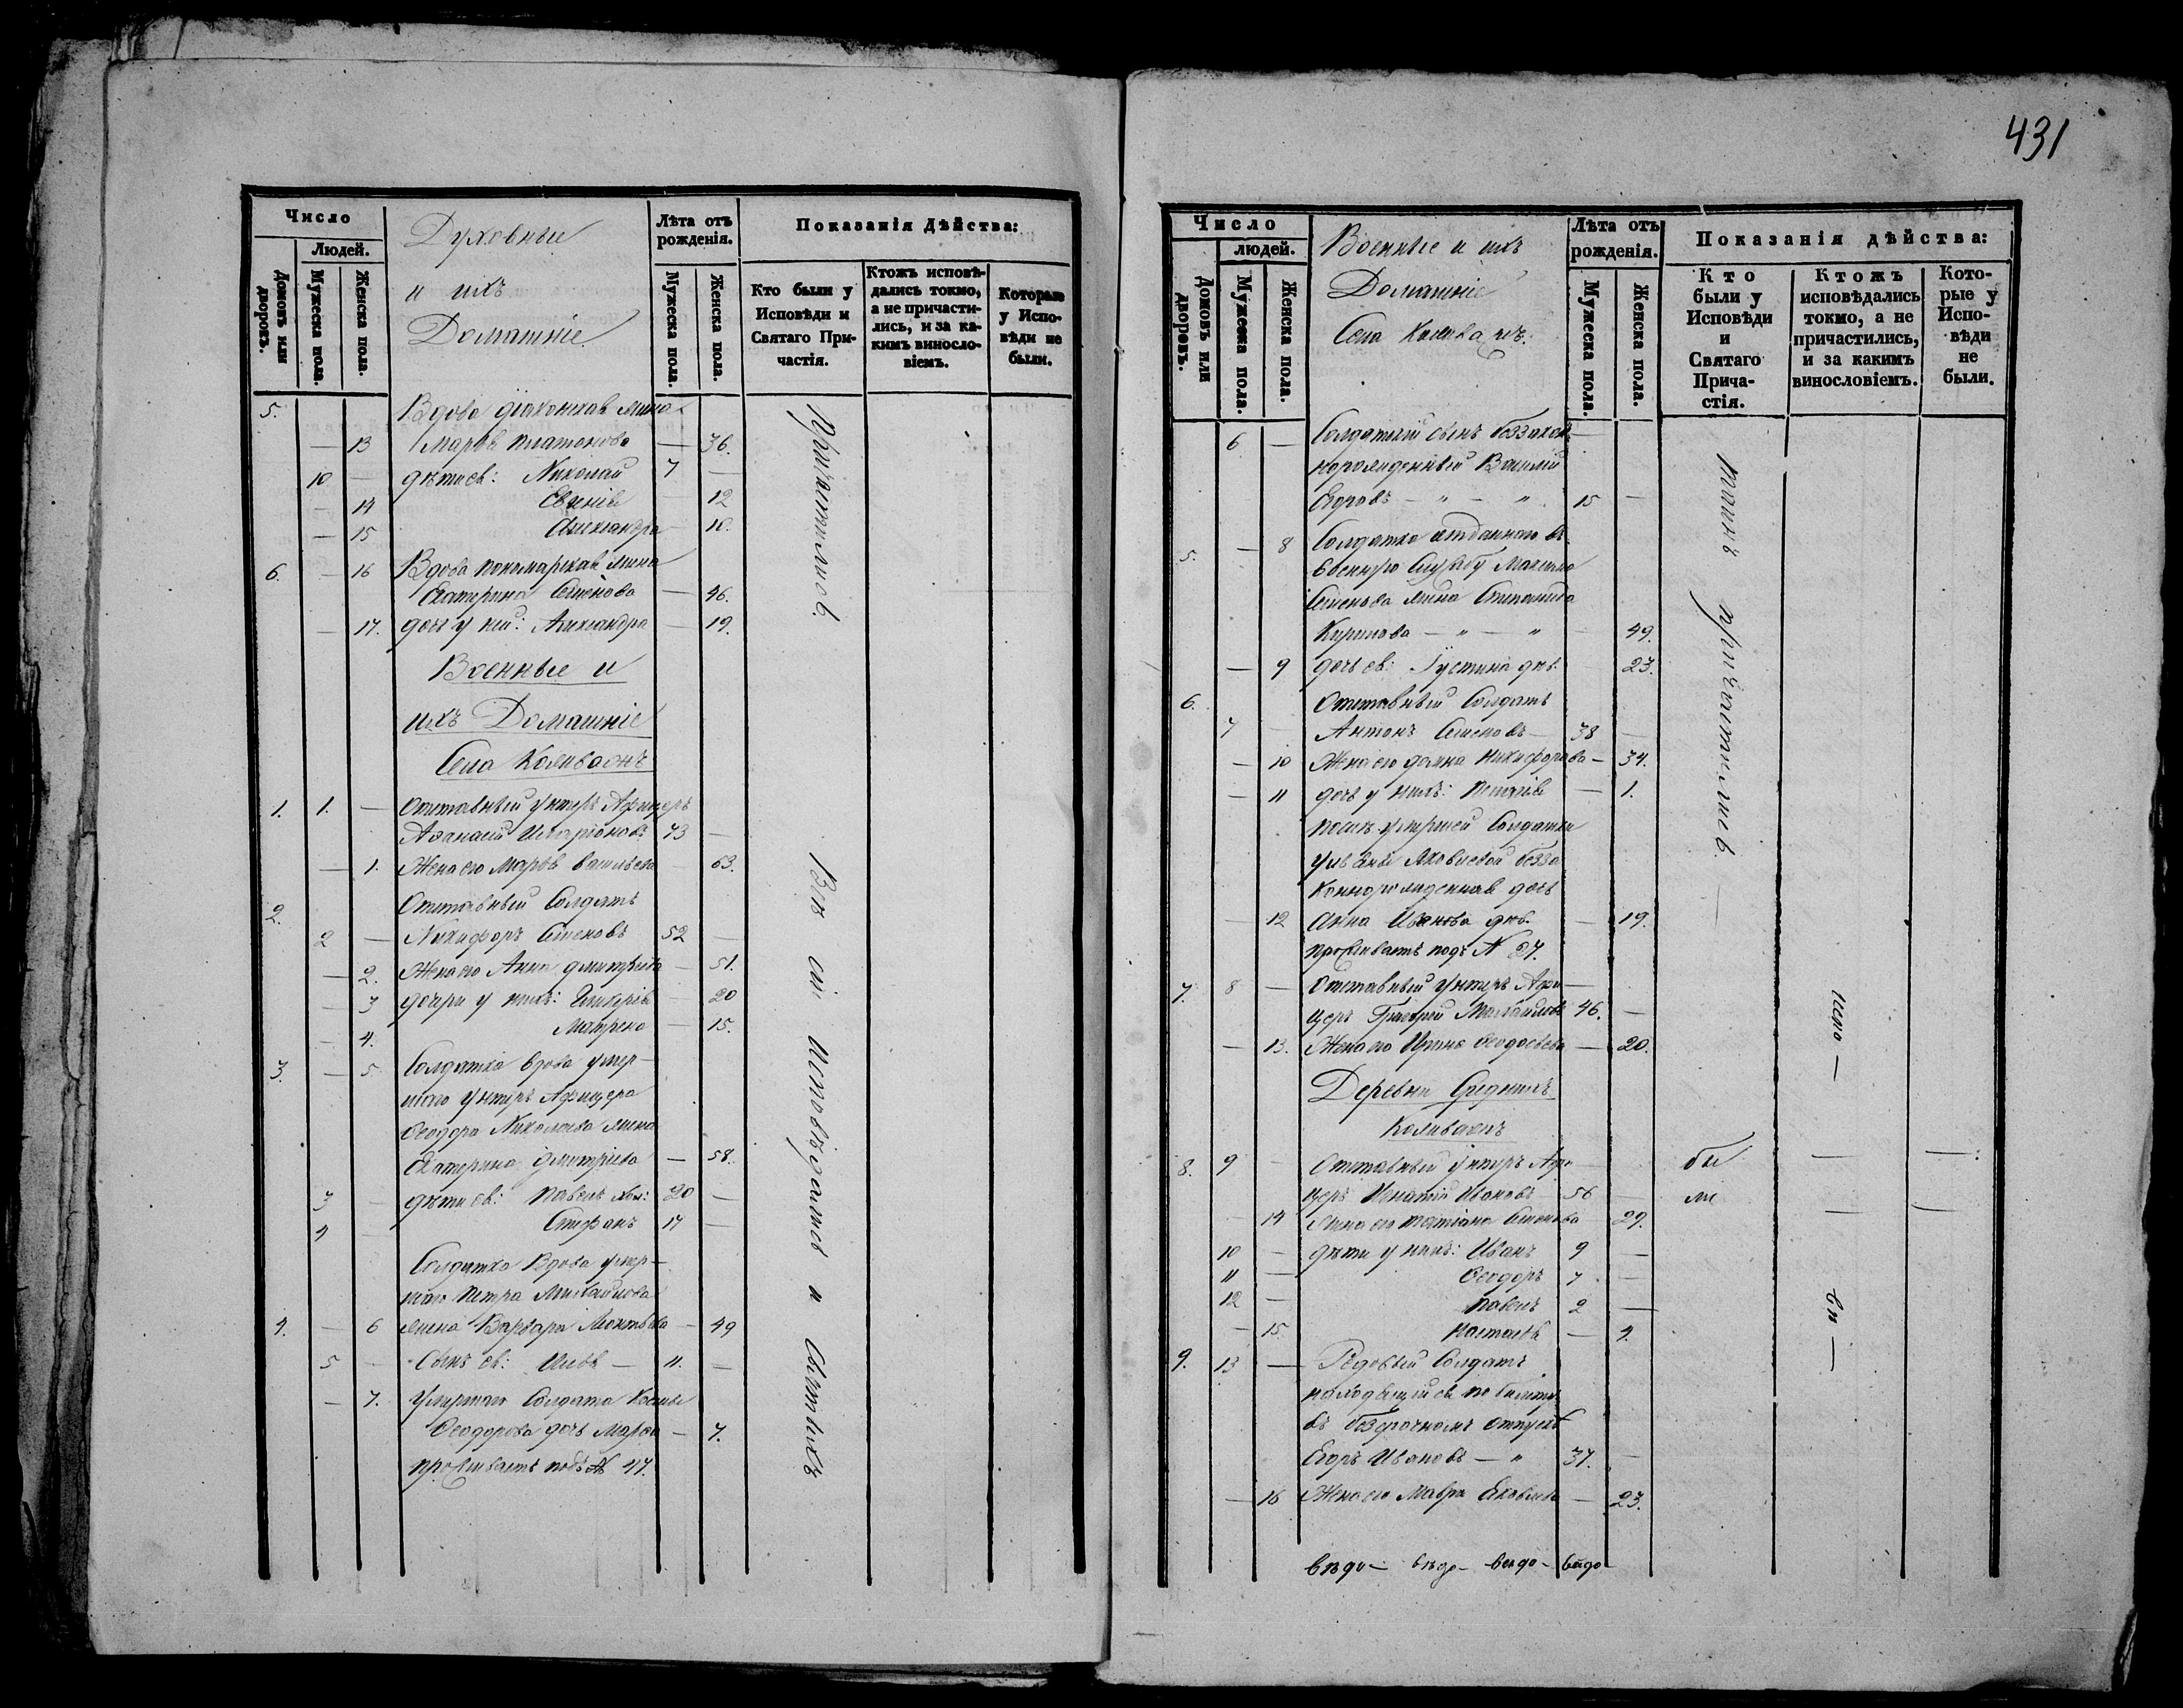 Число
Людей.
Домовъ или дворовъ.
Мужеска пола.
Женска пола.
Духовные
и ихъ
Домашніе
Лѣта отъ рожденія.
Мужеска пола.
Женска пола.
Показанія Дѣйства:
Кто были у Исповѣди и Святаго Причастія.
Ктожъ исповѣдались токмо, а не причастились, и за какимъ винословіемъ.
Которые у Исповѣди не были.
5. Вдова діаконская жена
— 13 Марѳа Платонова — 36.
10 — дѣти ея: Николай 7 —
— 14 Евгенія 12
— 15 Александра — 10.
6. — 16 Вдова пономарская жена
Екатерина Семенова — 46.
— 17. дочь у ней: Александра — 19.
Военные и
ихъ Домашніе
Села Колывани
1. 1. — Отставный унтеръ Афицеръ
Аѳанасій Иларіоновъ 73 —
— 1. Жена его Марѳа Васильева 63.
2. Отставный Солдатъ
2 — Никифоръ Семеновъ 52 —
— 2. Жена его Анна Дмитріева — 51.
— 3 дочери у нихъ: Гликерія — 20
— 4. Матрена — 15.
3. — 5 Солдатка вдова умер-
шаго унтеръ Афицера
Ѳеодора Николаева жена
Екатерина Дмитріева — 58.
3 — дѣти ея: Павелъ хол: 20 —
4 — Стефанъ 17 —
Солдатка Вдова умер-
шаго Петра Михайлова
4. — 6 жена Варвара Леонтьева — 49
5 — Сынъ ея: Илья — 11. —
— 7. Умершаго Солдата Космы
Ѳеодорова дочь Марѳа — 7.
проживаетъ подъ № 47.
Причастились.
Всѣ сіи Исповѣдались и Святыхъ
431
Число
людей.
Домовъ или дворовъ.
Мужеска пола.
Женска пола.
Военные и ихъ
Домашніе
Села
Лѣта отъ рожденія.
Мужеска пола.
Женска пола.
Показанія дѣйства:
Кто были у Исповѣди и Святаго Причастія.
Ктожъ исповѣдались токмо, а не причастились, и за какимъ винословіемъ.
Которые у Исповѣди не были.
6 — Солдатскій сынъ беззакон-
норожденный Василій
Егоровъ — " — " 15 —
5. — 8 Солдатка отданнаго въ
военную Службу Максима
Семенова жена Степанида
Кирилова — " — " 49.
— 9 дочь ея: Іустина дѣв. 23.
6. Отставный Солдатъ
7 — Антонъ Семеновъ — 38 —
— 10 Жена его Домна Никифорова — 34.
— 11 дочь у нихъ: Пелагія — 1.
Послѣ умершей Солдатки
Ульяны Яковлевой безза
коннорожденная дочь
— 12 Анна Иванова дѣв. — 19.
проживаетъ подъ № 27.
7. 8 — Отставный унтеръ Афи-
церъ Григорій Михайловъ 46. —
— 13. Жена его Ирина Ѳеодосѣева — 20.
Деревни Среднихъ
8. 9 — Отставный унтеръ Афи-
церъ Игнатій Ивановъ 56 —
— 14 Жена его Татіана Семенова 29.
10 — дѣти у нихъ: Иванъ 9 —
11 — Ѳеодоръ 7 —
12 — Павелъ 2 —
— 15. — 4.
9. 13 — Редовый Солдатъ
находящійся по билету
въ безсрочномъ отпускѣ
Егоръ Ивановъ — " 37. —
— 16 Жена его Мавра Яковлева — 23.
таинъ причастились. —
бы
ли